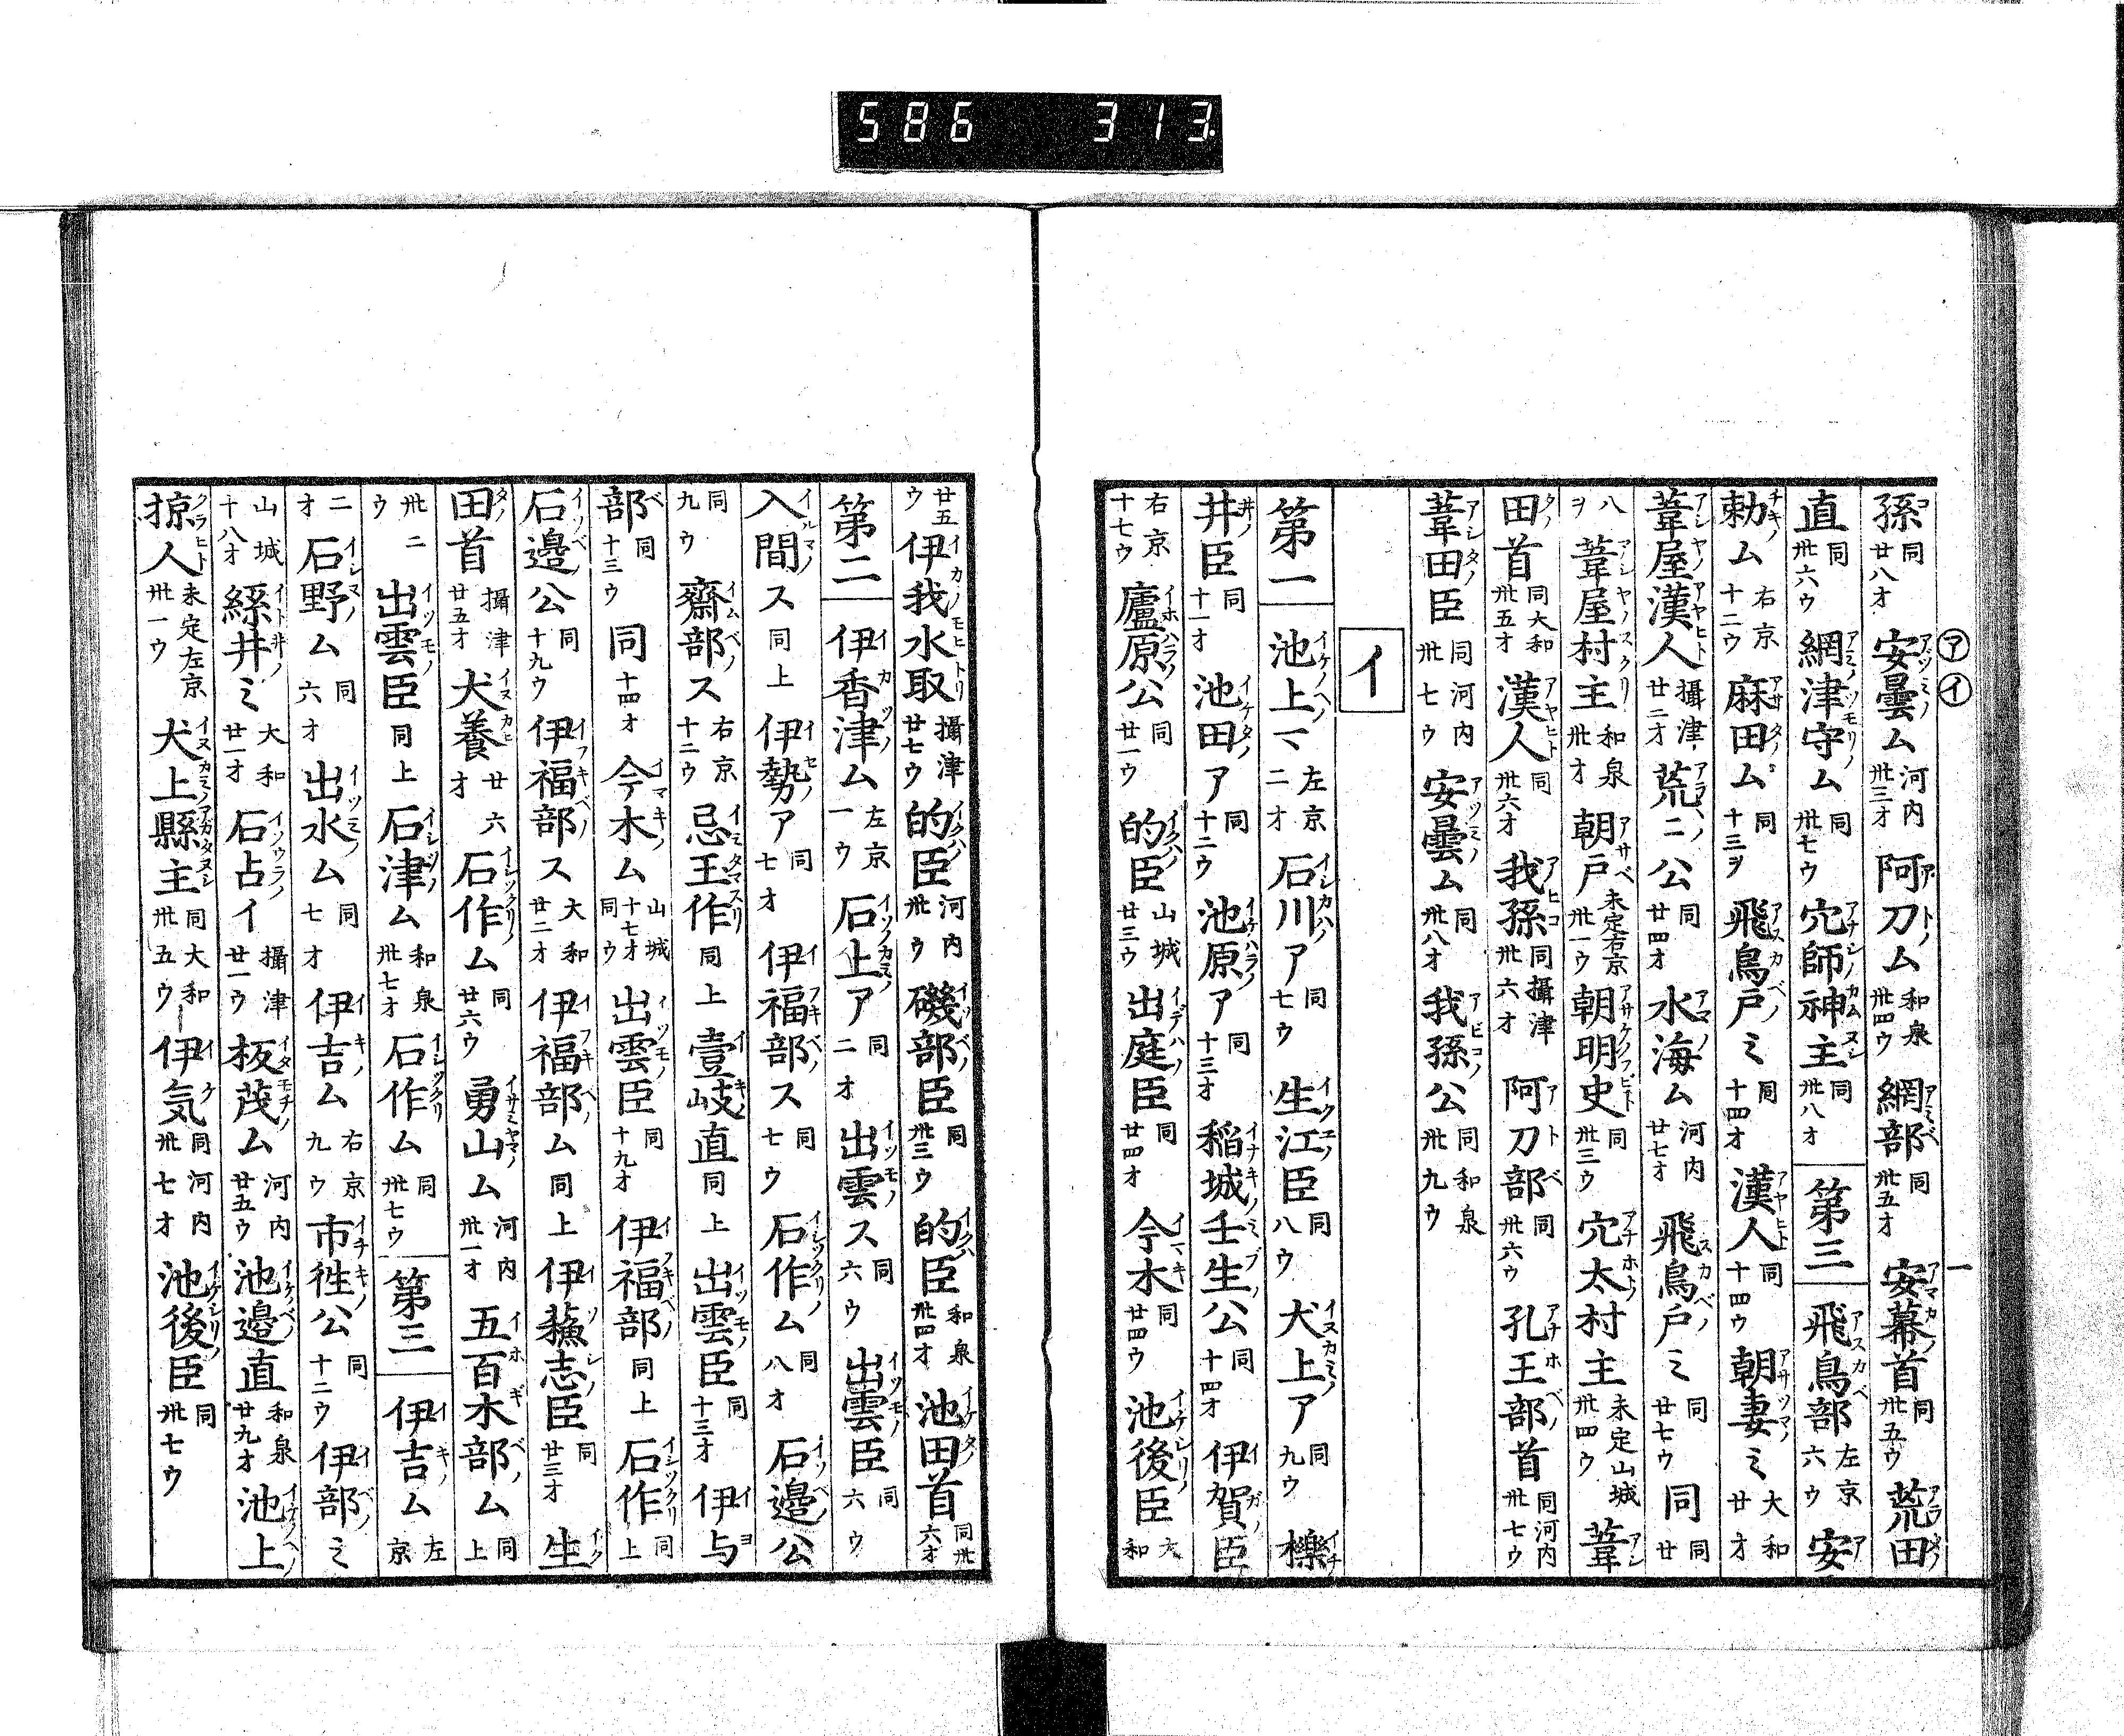 586 313
㋐㋑
一
孫同廿八オ 安曇ム河内卅三オ 阿刀ム和泉卅四ウ 網部同卅五オ 安幕首同卅五ウ 荒田
直同卅六ウ 網津守ム同卅七ウ 穴師神主同卅八オ 第三 飛鳥部左京六ウ 安
勅ム右京十二ウ 麻田ム同十三ヲ 飛鳥戸ミ同十四オ 漢人同十四ウ 朝妻ミ大和廿オ
葦屋漢人攝津廿二オ 荒ニ公同廿四オ 水海ム河内廿七オ 飛鳥戸ミ同廿七ウ 同同廿
八ヲ 葦屋村主和泉卅オ 朝戸未定右京卅一ウ 朝明史同卅三ウ 穴太村主未定山城卅四ウ 葦
田首同大和卅五オ 漢人同卅六オ 我孫同攝津卅六オ 阿刀部同卅六ウ 孔王部首同河内卅七ウ
葦田臣同河内卅七ウ 安曇ム同卅八オ 我孫公同和泉卅九ウ
イ
第一 池上マ左京二オ 石川ア同七ウ 生江臣同八ウ 犬上ア同九ウ 櫟
井臣同十一オ 池田ア同十二ウ 池原ア同十三オ 稲城壬生公同十四オ 伊賀臣
右京十七ウ 廬原公同廿一ウ 的臣山城廿三ウ 出庭臣同廿四オ 今木同廿四ウ 池後臣大和
廿五ウ 伊我水取攝津廿七ウ 的臣河内卅ウ 磯部臣同卅三ウ 的臣和泉卅四オ 池田首同卅六オ
第二 伊香津ム左京一ウ 石上ア同二オ 出雲ス同六ウ 出雲臣同六ウ
入間ス同上 伊勢ア同七オ 伊福部ス同七ウ 石作ム同八オ 石邊公
同九ウ 齋部ス右京十二ウ 忌玉作同上 壹岐直同上 出雲臣同十三オ 伊与
部同十三ウ 同十四オ 今木ム山城十七オ同ウ 出雲臣同十九オ 伊福部同上 石作同上
石邊公同十九ウ 伊福部ス大和廿二オ 伊福部ム同上 伊蘓志臣同廿三オ 生
田首攝津廿五オ 犬養廿六オ 石作ム同廿六ウ 勇山ム河内卅一オ 五百木部ム同上
卅二ウ 出雲臣同上 石津ム和泉卅七オ 石作ム同卅七ウ 第三 伊吉ム左京
二オ 石野ム同六オ 出水ム同七オ 伊吉ム右京九ウ 市徃公同十二ウ 伊部ミ
山城十八オ 絲井ミ大和廿一オ 石占イ攝津廿一ウ 板茂ム河内廿五ウ 池邉直和泉廿九オ 池上
掠人未定左京卅一ウ 犬上縣主同大和卅五ウ 伊気同河内卅七オ 池後臣同卅七ウ